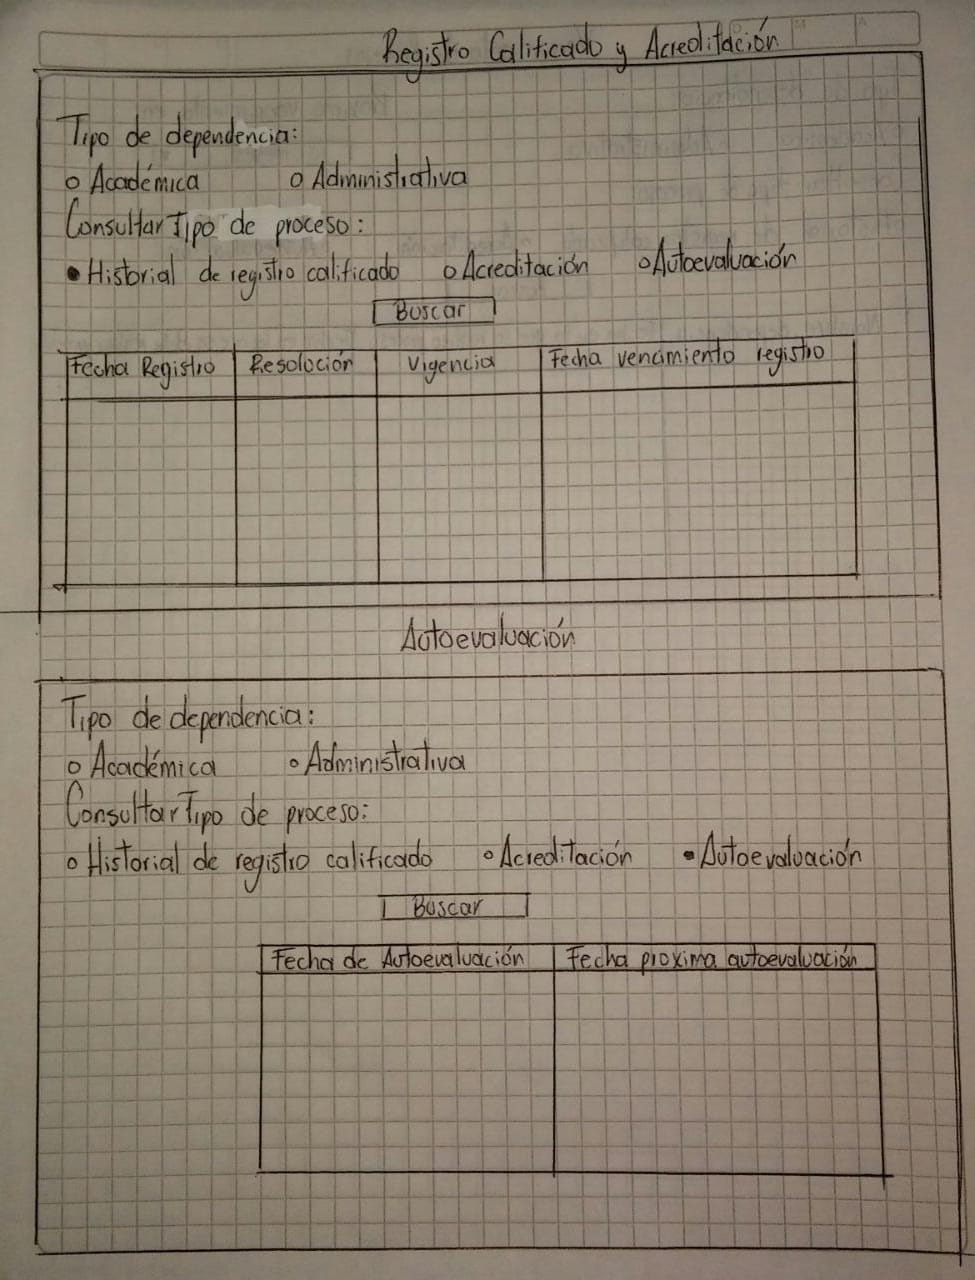 Registro Calificado y Acreditación
Tipo de dependencia:
o Académica o Administrativa
Consultar Tipo de proceso:
• Historial de registro calificado o Acreditación o Autoevaluación
Buscar
Fecha Registro Resolución Vigencia Fecha vencimiento registro
Autoevaluación
Tipo de dependencia:
o Académica o Administrativa
Consultar Tipo de proceso:
o Historial de registro calificado o Acreditación • Autoevaluación
Buscar
Fecha de Autoevaluación Fecha proxima autoevaluación